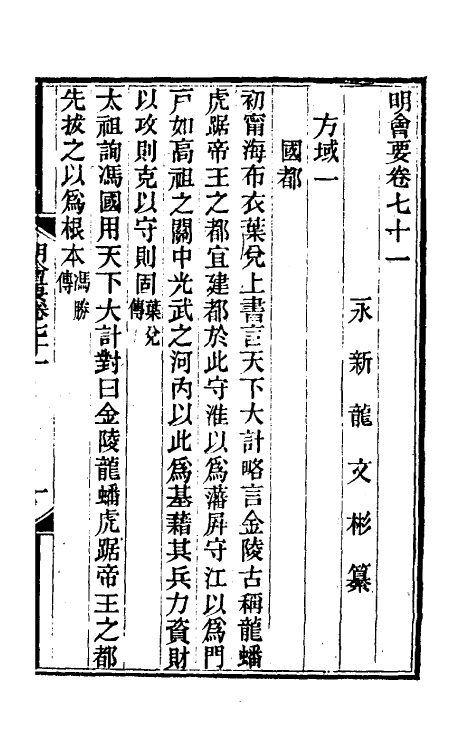 明會要卷七十一
永新龍文彬纂
方域一
國都
初甯海布衣葉兌上書言天下大計略言金陵古稱龍蟠
虎踞帝王之都宜建都於此守淮以爲藩屏守江以爲門
戸如高祖之關中光武之河內以此爲基藉其兵力資財
以攻則克以守則固葉兌傳
太祖詢馮國用天下大計對曰金陵龍蟠虎踞帝王之都
先拔之以爲根本馮勝傳
明會要卷七十一
一